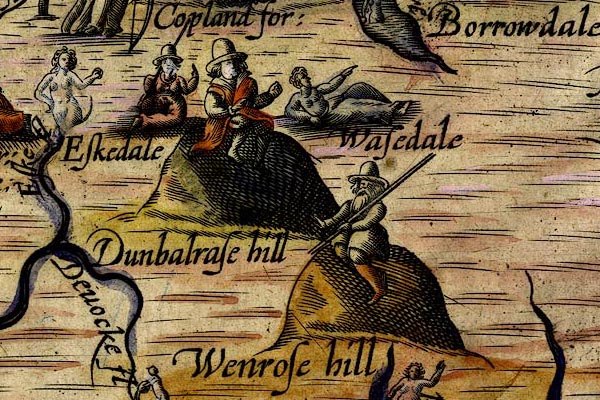 Copland for:
Borrowdale
Eſkedale
Waſedale
Eſke fl
Dunbalraſe hill
Devocke fl
Wenroſe hill